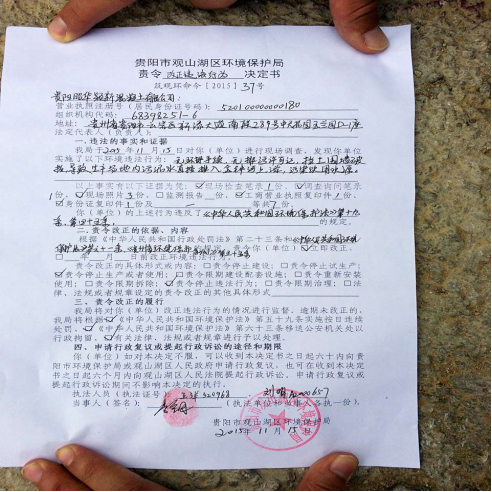 贵阳市观山湖区环境保护局
责令 改正违法行为 决定书
筑观环命令［2015］37号
贵阳 华 新混凝土有限公司：
营业执照注册号（居民身份证号码）：520100000000180
组织机构代码：68398251-6
地址：贵州省贵阳市云岩区新添大道南段289号中天花园玉兰园D-1座
法定代表人（负责人）：
一、违法的事实和证据
我局于2015年11月15日对你（单位）进行现场调查，发现你单位
实施了以下环境违法行为：无环评手续，无排污许可证，挡土围墙破
损，导致生产场地内污水直接排入
以上事实有以下证据为凭：☑现场检查笔录1份、☑调查询问笔录
1份、☑现场照片3份、□监测报告 份、□营业执照复印件1份及
☑身份证复印件1份及 — 等共7份。
你（单位）的上述行为违反了《中华人民共和国环境保护法》第十九
条、第四十五条 的规定。
二、责令改正的依据、内容
根据《中华人民共和国行政处罚法》第二十三条和《中华人民共和国环境
保护法》第六十一条、 责令你（单位）☑立即改正、
□ 年 月 日前改正环境违法行为：
责令改正的具体形式或内容：□责令停止建设；□责令停止试生产；
☑责令停止生产或者使用；□责令限期建设配套设施；□责令重新安装
使用；□责令限期拆除；☑责令停止违法行为；□责令限期治理；□法
律、法规或者规章设定的责令改正的其他具体形式
三、责令改正的履行
我局将对你（单位）改正违法行为的情况进行监督。逾期未改正的，
我局将根据☑《中华人民共和国环境保护法》第五十九条实施按日连续
处罚、☑《中华人民共和国环境保护法》第六十三条移送公安机关处以
行政拘留、☑有关法律、法规或者规章进行予以处理。
四、申请行政复议或提起行政诉讼的途径和期限
你（单位）如对本决定不服，可以在收到本决定书之日起六十内向贵
阳市环境保护局或观山湖区人民政府申请行政复议，也可在收到本决定
书之日起六个月内向观山湖区人民法院提起行政诉讼。申请行政复议或
提起行政诉讼期间不影响本决定的执行。
执法人员（执法证号）：
当事人（签名）： （执法单位和当事人各执一份）。
贵阳市观山湖区环境保护局
2015年11月15日